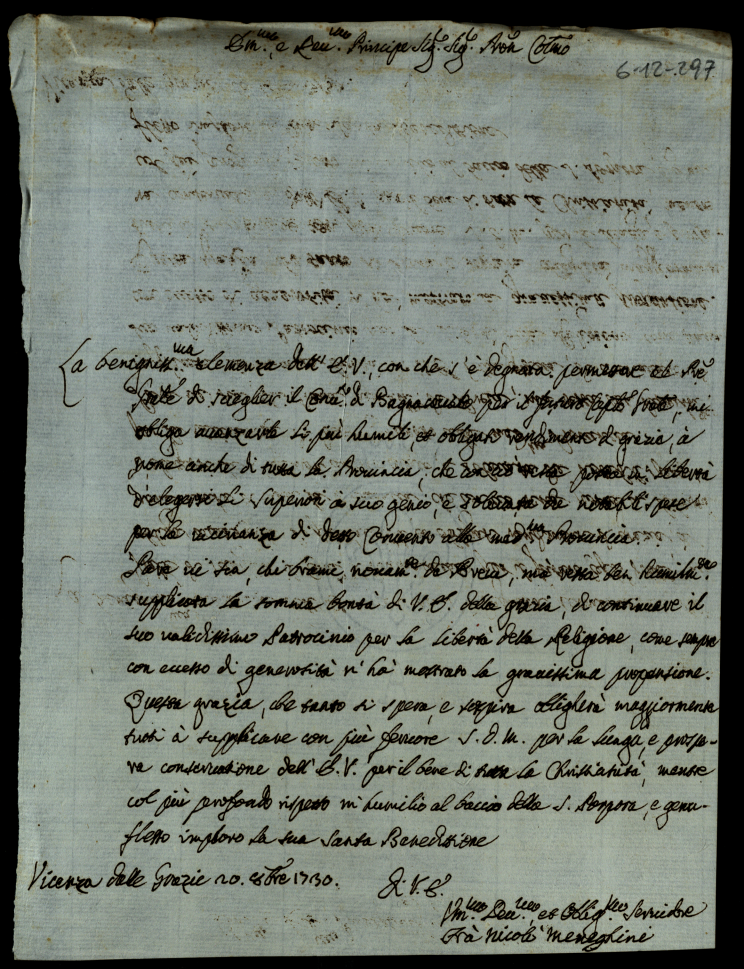 Em.mo e Rev.mo Principe Sig.r Sig.r Pron Col.mo
6-12-297
La benigniss.ma clemenza dell' E.V., con che s'è degnata permettere al Pre
di sceglier il Con.to di Bagnacavallo per il Cap.lo , mi
obliga avanzarle li più humili, et obligati rendimenti di grazia, à
nome anche di tutta la Provincia, che libertà
d'elegersi li Superiori à suo genio, e notabili spese
per la vicinanza di detto Convento alla med.ma Provincia.
vi sia, chi brami, novam.te de Brevi, ma resta ben humilm.te
supplicata la somma bontà di V.E. della grazia, di continuare il
suo validissimo Patrocinio per la libertà della Religione, come sempre
con eccesso di generosità n'hà mostrato la gravissima propensione.
Questa grazia, che tanto si spera, e sospira obligherà maggiormente
tutti à supplicare con più fervore S.D.M. per la lunga, e prospe-
ra conservazione dell' E.V. per il bene di tutta la Christianità, mentre
col più profondo rispetto m'humilio al baccio della S. Porpora, e genu-
flesso imploro la sua Santa Benedittione
Vicenza dalle Grazie 20. 8bre 1730.
Di V.E.
Hum.mo Dev.mo, et Oblig.mo Servidore
Frà Nicolò Meneghini